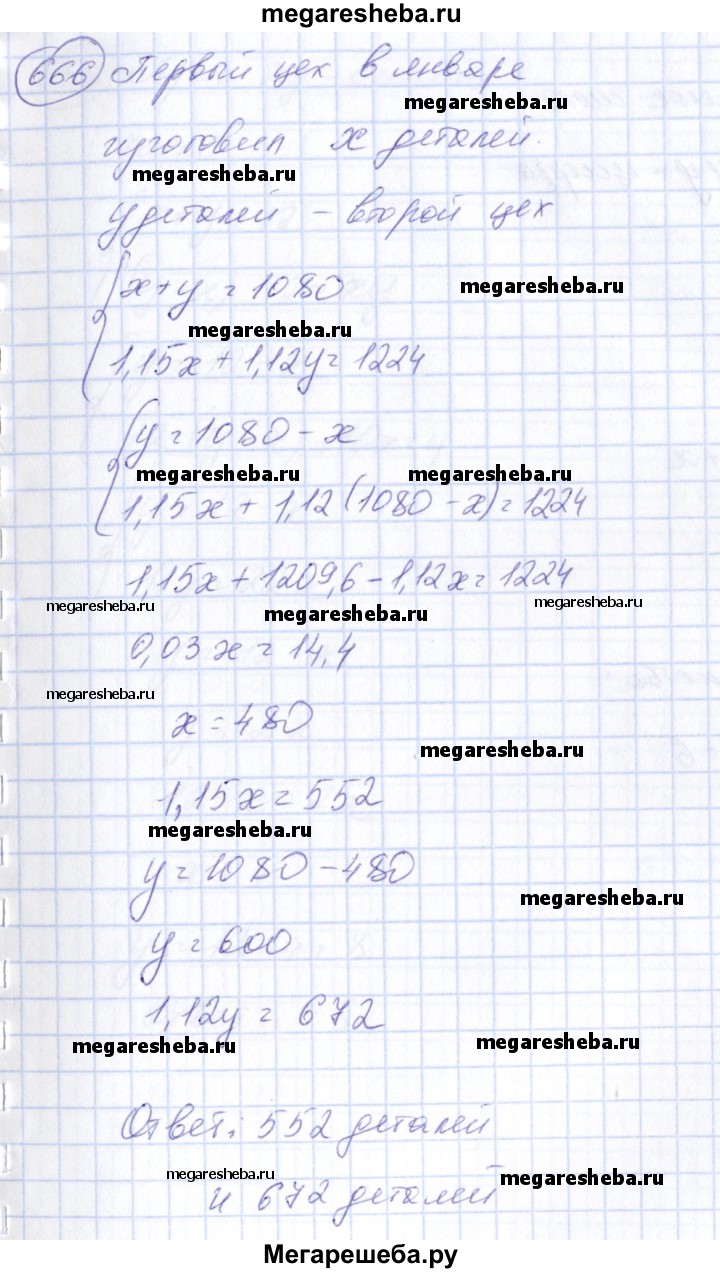 megaresheba.ru
666 Первый цех в январе
megaresheba.ru
изготовил x деталей.
megaresheba.ru
y деталей – второй цех
x + y = 1080
megaresheba.ru
megaresheba.ru
1,15x + 1,12y = 1224
y = 1080 – x
megaresheba.ru megaresheba.ru
1,15x + 1,12(1080 – x) = 1224
1,15x + 1209,6 – 1,12x = 1224
megaresheba.ru megaresheba.ru megaresheba.ru
0,03x = 14,4
megaresheba.ru
x = 480
megaresheba.ru
1,15x = 552
megaresheba.ru
y = 1080 – 480
megaresheba.ru
y = 600
1,12y = 672
megaresheba.ru megaresheba.ru
Ответ: 552 деталей
megaresheba.ru megaresheba.ru
и 672 деталей
Мегарешеба.ру